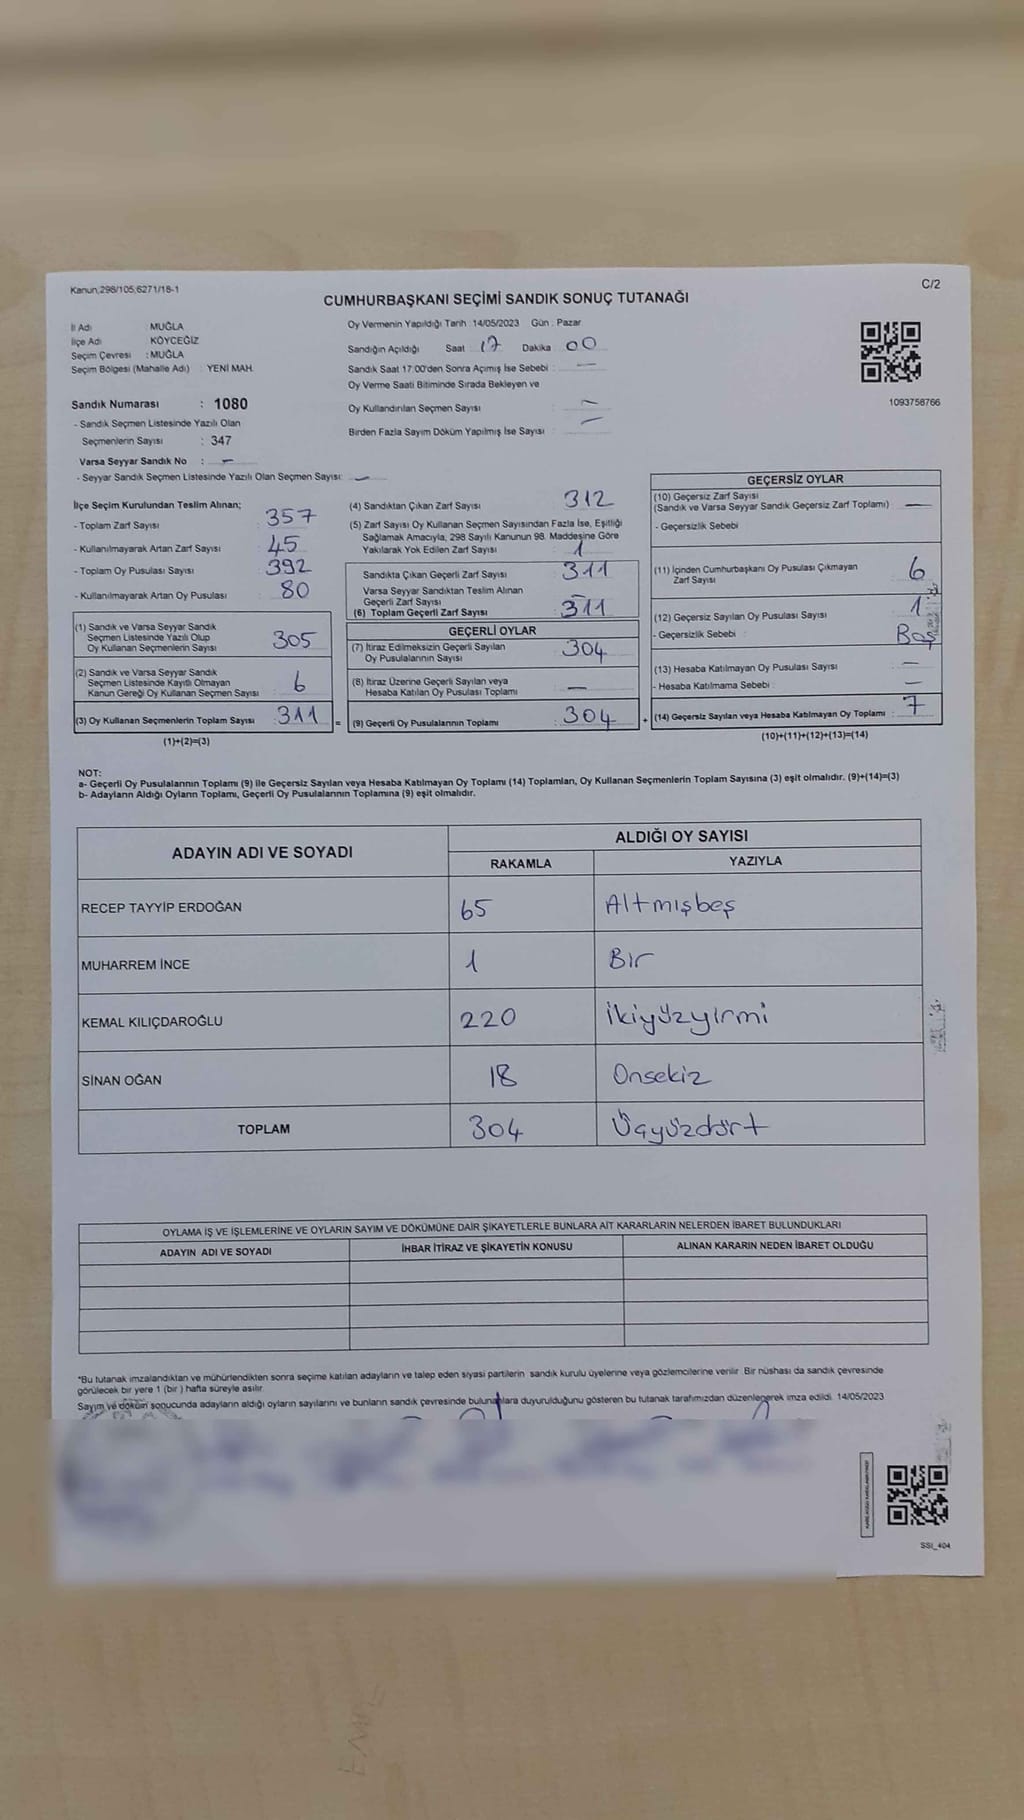 Kanun,298/105,6271/18-1
C/2
CUMHURBAŞKANI SEÇİMİ SANDIK SONUÇ TUTANAĞI
İl Adı : MUĞLA
İlçe Adı : KÖYCEĞİZ
Seçim Çevresi : MUĞLA
Seçim Bölgesi (Mahalle Adı) : YENİ MAH.
Sandık Numarası : 1080
- Sandık Seçmen Listesinde Yazılı Olan
Seçmenlerin Sayısı : 347
Varsa Seyyar Sandık No : —
- Seyyar Sandık Seçmen Listesinde Yazılı Olan Seçmen Sayısı: —
Oy Vermenin Yapıldığı Tarih : 14/05/2023 Gün : Pazar
Sandığın Açıldığı Saat 17 Dakika 00
Sandık Saat 17:00'den Sonra Açımış İse Sebebi : —
Oy Verme Saati Bitiminde Sırada Bekleyen ve
Oy Kullandırılan Seçmen Sayısı : —
Birden Fazla Sayım Döküm Yapılmış İse Sayısı : —
1093758766
İlçe Seçim Kurulundan Teslim Alınan;
- Toplam Zarf Sayısı : 357
- Kullanılmayarak Artan Zarf Sayısı : 45
- Toplam Oy Pusulası Sayısı : 392
- Kullanılmayarak Artan Oy Pusulası : 80
(1) Sandık ve Varsa Seyyar Sandık
Seçmen Listesinde Yazılı Olup
Oy Kullanan Seçmenlerin Sayısı : 305
(2) Sandık ve Varsa Seyyar Sandık
Seçmen Listesinde Kayıtlı Olmayan
Kanun Gereği Oy Kullanan Seçmen Sayısı : 6
(3) Oy Kullanan Seçmenlerin Toplam Sayısı : 311 =
(1)+(2)=(3)
(4) Sandıktan Çıkan Zarf Sayısı : 312
(5) Zarf Sayısı Oy Kullanan Seçmen Sayısından Fazla İse, Eşitliği
Sağlamak Amacıyla, 298 Sayılı Kanunun 98. Maddesine Göre
Yakılarak Yok Edilen Zarf Sayısı : 1
Sandıkta Çıkan Geçerli Zarf Sayısı : 311
Varsa Seyyar Sandıktan Teslim Alınan
Geçerli Zarf Sayısı : —
(6) Toplam Geçerli Zarf Sayısı : 311
GEÇERLİ OYLAR
(7) İtiraz Edilmeksizin Geçerli Sayılan
Oy Pusulalarının Sayısı : 304
(8) İtiraz Üzerine Geçerli Sayılan veya
Hesaba Katılan Oy Pusulası Toplamı : —
(9) Geçerli Oy Pusulalarının Toplamı : 304 +
GEÇERSİZ OYLAR
(10) Geçersiz Zarf Sayısı
(Sandık ve Varsa Seyyar Sandık Geçersiz Zarf Toplamı) : —
- Geçersizlik Sebebi
(11) İçinden Cumhurbaşkanı Oy Pusulası Çıkmayan
Zarf Sayısı : 6
(12) Geçersiz Sayılan Oy Pusulası Sayısı : 1
- Geçersizlik Sebebi : Boş
(13) Hesaba Katılmayan Oy Pusulası Sayısı : —
- Hesaba Katılmama Sebebi : —
(14) Geçersiz Sayılan veya Hesaba Katılmayan Oy Toplamı : 7
(10)+(11)+(12)+(13)=(14)
NOT:
a- Geçerli Oy Pusulalarının Toplamı (9) ile Geçersiz Sayılan veya Hesaba Katılmayan Oy Toplamı (14) Toplamları, Oy Kullanan Seçmenlerin Toplam Sayısına (3) eşit olmalıdır. (9)+(14)=(3)
b- Adayların Aldığı Oyların Toplamı, Geçerli Oy Pusulalarının Toplamına (9) eşit olmalıdır.
ADAYIN ADI VE SOYADI ALDIĞI OY SAYISI
RAKAMLA YAZIYLA
RECEP TAYYİP ERDOĞAN 65 Altmışbeş
MUHARREM İNCE 1 Bir
KEMAL KILIÇDAROĞLU 220 İkiyüzyirmi
SİNAN OĞAN 18 Onsekiz
TOPLAM 304 Üçyüzdört
OYLAMA İŞ VE İŞLEMLERİNE VE OYLARIN SAYIM VE DÖKÜMÜNE DAİR ŞİKAYETLERLE BUNLARA AİT KARARLARIN NELERDEN İBARET BULUNDUKLARI
ADAYIN ADI VE SOYADI İHBAR İTİRAZ VE ŞİKAYETİN KONUSU ALINAN KARARIN NEDEN İBARET OLDUĞU
*Bu tutanak imzalandıktan ve mühürlendikten sonra seçime katılan adayların ve talep eden siyasi partilerin sandık kurulu üyelerine veya gözlemcilerine verilir. Bir nüshası da sandık çevresinde
görülecek bir yere 1 (bir) hafta süreyle asılır.
Sayım ve döküm sonucunda adayların aldığı oyların sayılarını ve bunların sandık çevresinde bulunanlara duyurulduğunu gösteren bu tutanak tarafımızdan düzenlenerek imza edildi. 14/05/2023
SSI_404